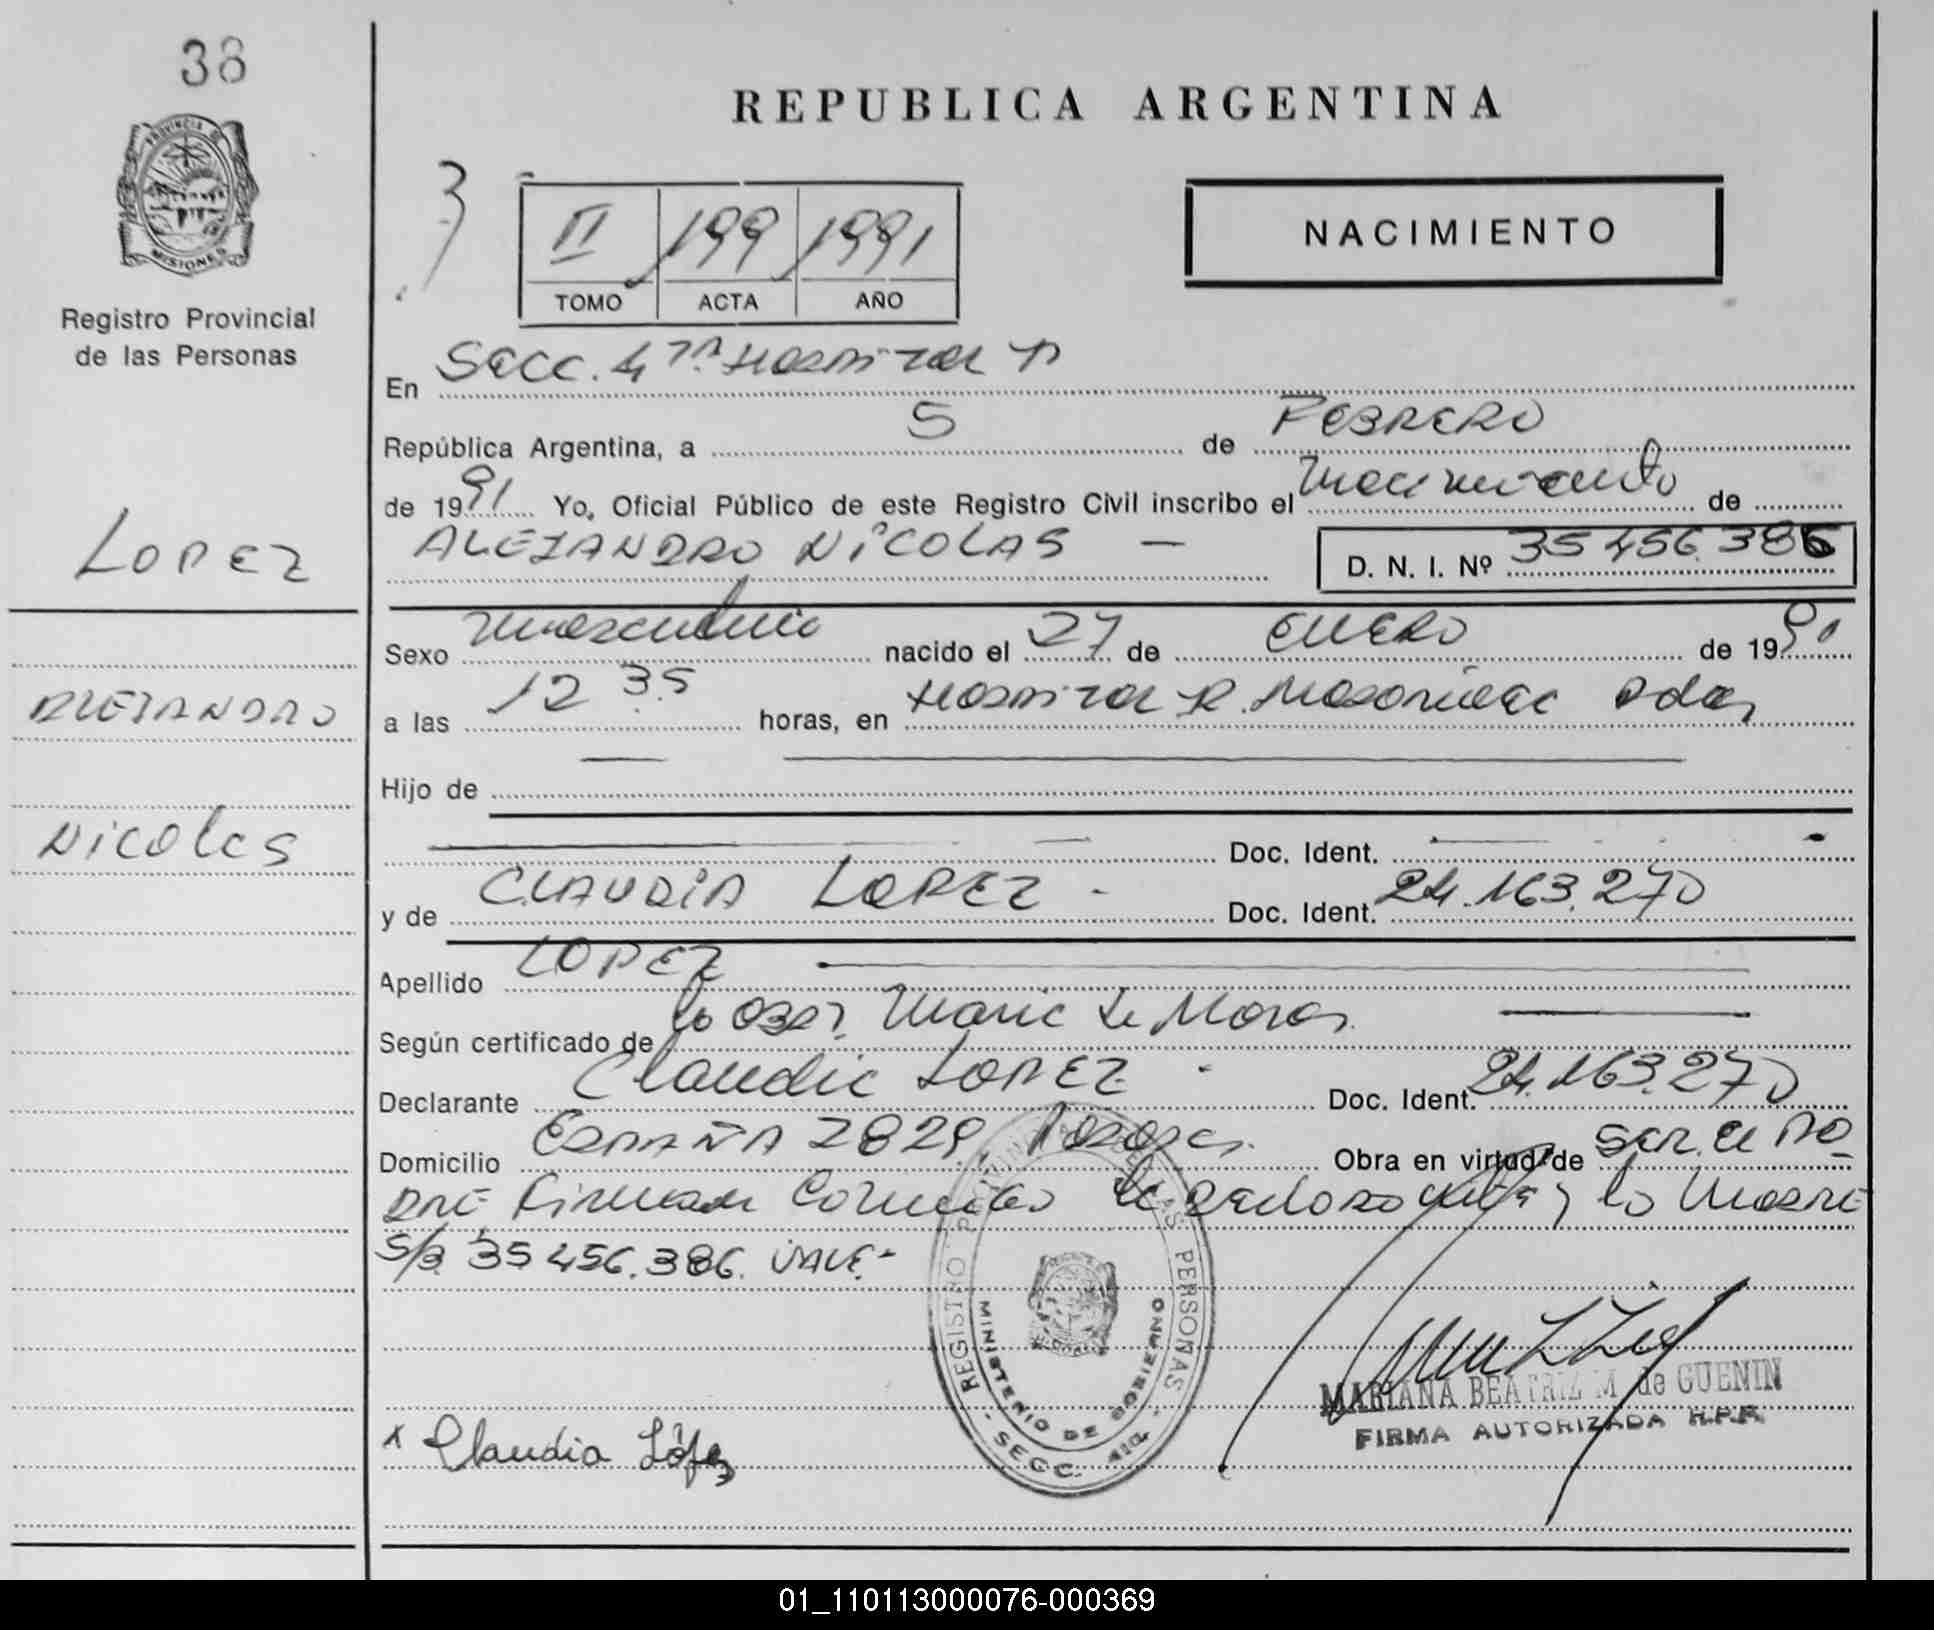 38
PROVINCIA DE
MISIONES
Registro Provincial
de las Personas
LOPEZ
ALEJANDRO
NICOLAS
REPUBLICA ARGENTINA
II 199 1991
TOMO ACTA AÑO
NACIMIENTO
En Secc. 4ta. Hospital
República Argentina, a 5 de FEBRERO
de 1991 Yo, Oficial Público de este Registro Civil inscribo el nacimiento de
ALEJANDRO NICOLAS — D. N. I. Nº 35 456.386
Sexo masculino nacido el 27 de ENERO de 1991
a las 12 35 horas, en Hospital R. Madariaga Pdas
Hijo de
Doc. Ident.
y de CLAUDIA LOPEZ - Doc. Ident. 24.163.270
Apellido LOPEZ
Según certificado de la Obst. Maria de Moras
Declarante Claudia LOPEZ - Doc. Ident. 24.163.270
Domicilio ESPAÑA 2829, Posadas Obra en virtud de Ser la MA-
DRE, Firman Conmigo la declarante y la Madre
S/B 35 456.386. VALE.-
REGISTRO PROVINCIAL DE LAS PERSONAS
MINISTERIO DE GOBIERNO
- SECC. 4ta. -
MARIANA BEATRIZ M de GUENIN
FIRMA AUTORIZADA R.P.P.
x Claudia López
01_110113000076-000369